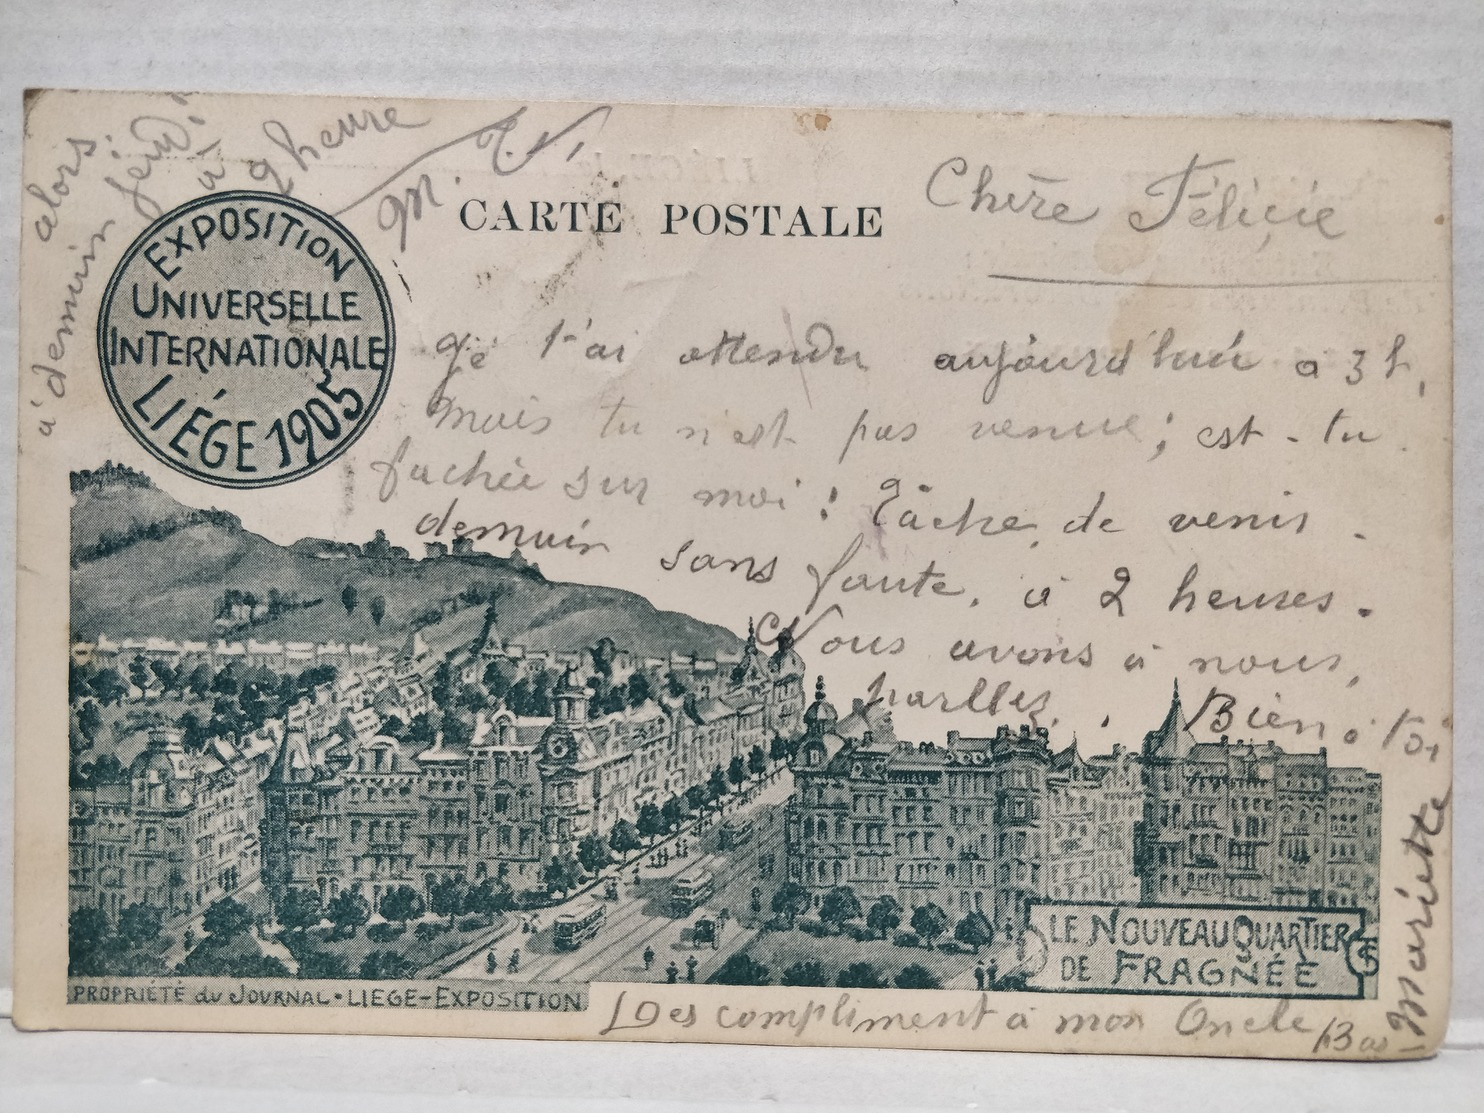 alors
à demain jeudi
à
2 heure
EXPOSITION
UNIVERSELLE
INTERNATIONALE
LIÉGE 1905
CARTE POSTALE
Chère Félicie
Je t'ai attendu aujourd'hui a 3 h,
mais tu n'est pas venue; est-tu
fachée sur moi! Tâche de venir
demain sans faute, à 2 heures.
Nous avons à nous,
parllez. Bien à toi
Mariette
LE NOUVEAU QUARTIER
DE FRAGNÉE
PROPRIÉTÉ du JOURNAL-LIEGE-EXPOSITION
Des compliment à mon Oncle